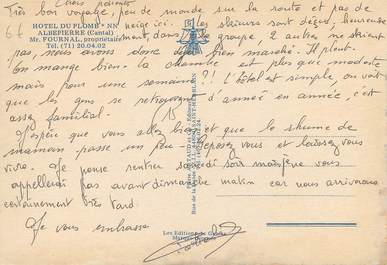 Chers parents
Très bon voyage, peu de monde sur la route et pas de
HOTEL DU PLOMB - NN
neige ici. Les skieurs sont déçus, heureuse
ALBEPIERRE (Cantal)
ment, dans le groupe 2 autres ne skient
Mr. FOURNAL, propriétaire
Tél. (71) 20.04.02
pas, nous avons donc bien marché. Il pleut.
On mange bien. la chambre est plus que modeste
mais pour une semaine ?! L'hôtel est simple, on voit
que les gens se retrouvent d'année en année, c'est
assez familial.
J'espère que vous allez bien et que le rhume de
maman passe un peu. Reposez vous et laissez vous
vivre. Je pense rentrer samedi soir mais je ne vous
appellerai pas avant dimanche matin car nous arriverons
certainement très tard.
Je vous embrasse
Les Editions du